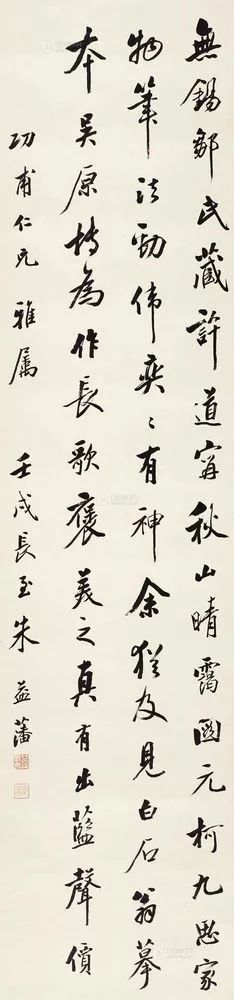 無錫鄒氏藏許道寧秋山晴靄圖元柯九思家
物筆法勁偉奕〻有神余猶及見白石翁摹
本吴原博為作長歌褒美之真有出藍聲價
功甫仁兄 雅属 壬戌長至朱益藩